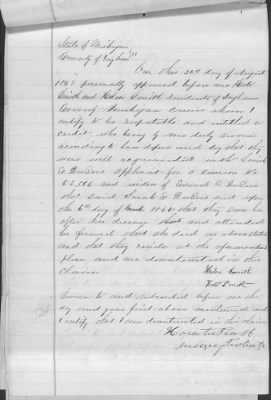 State of Michigan
County of Ingham } ss
On this 30th day of August
1867 personally appeared before me Kate
Smith and Helen Smith residents of Ingham
County Michigan whom I
certify to be reputable and entitled to
credit who being by me duly sworn
according to law depose and say that they
were well acquainted with Sarah
E applicant for a pension No
and widow of Edward D
that said Sarah E died upon
the 6th day of that they saw her
after her decease and attended
her funeral that she died as above stated
and that they reside at the aforementioned
place and are disinterested in this
Claim
Helen Smith
Kate Smith
Sworn to and subscribed before me the
day and year first above mentioned and
I certify that I am disinterested in this claim
Horatio Pratt
Justice of the Peace